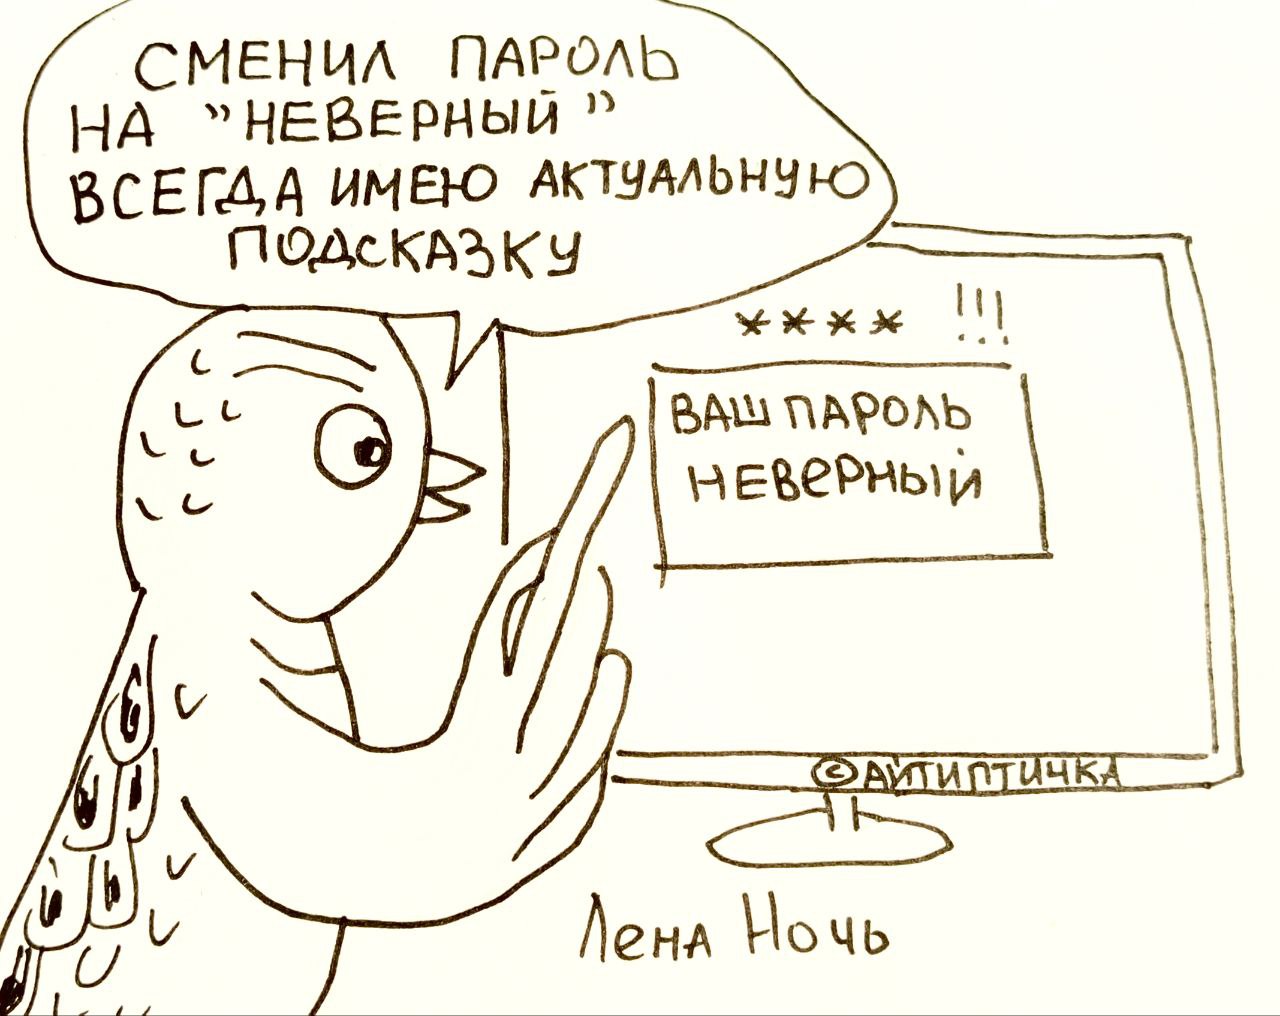 СМЕНИЛ ПАРОЛЬ
НА "НЕВЕРНЫЙ"
ВСЕГДА ИМЕЮ АКТУАЛЬНУЮ
ПОДСКАЗКУ
**** !!!
ВАШ ПАРОЛЬ
НЕВЕРНЫЙ
©АЙТИПТИЧКА
Лена Ночь